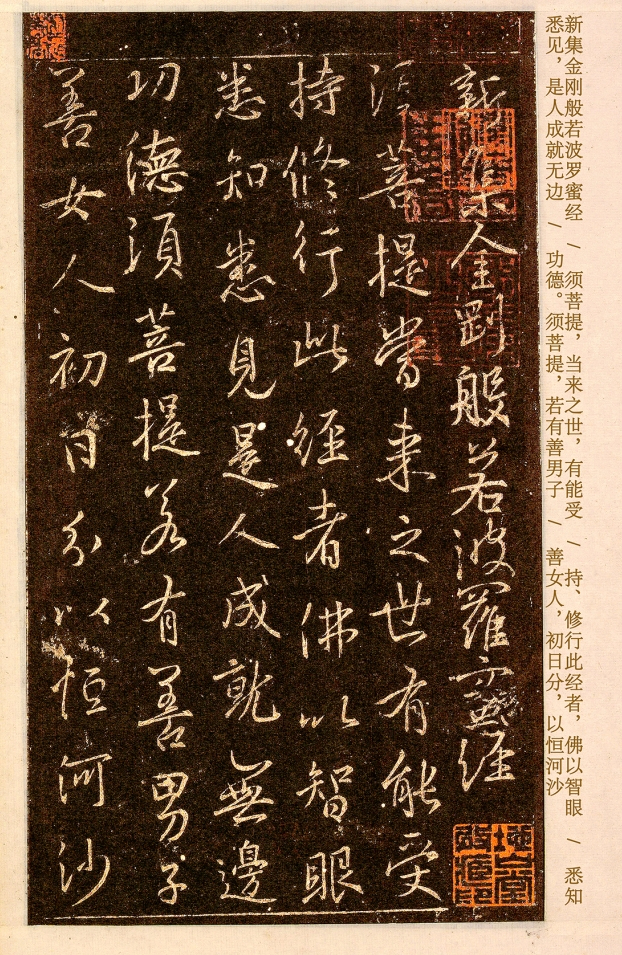 新集金刚般若波罗蜜经 / 须菩提，当来之世，有能受 / 持、修行此经者，佛以智眼 / 悉知
悉见，是人成就无边 / 功德。须菩提，若有善男子 / 善女人，初日分，以恒河沙
新集金剛般若波羅蜜經
須菩提當来之世有能受
持修行此經者佛以智眼
悉知悉見是人成就無邊
功德須菩提若有善男子
善女人初日分以恒河沙